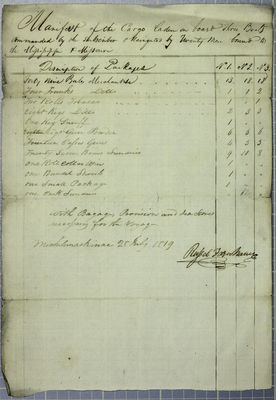 Manifest of the Cargo Laden on board three Boats
commanded by the Subscriber & Navigated by Twenty Men bound to
the Mississippi & Missouri
Description of Packages No 1. No 2. No 3.
Forty Nine Bales Merchandise 13 18 18
Four Trunks Ditto 1 1 2
Two Tobacco 1 1
Eight Kegs Ditto 2 3 3
One Keg 1
Kegs Gun Powder 6 6 6
Fourteen Cases Guns 4 5 5
Twenty Seven Boxes Sundries 9 10 8
one
one Bundle
one Small Package
one Sundries
With Baggage Provisions and Sea Stores
necessary for the Voyage
Michilimackinac 25 July 1819